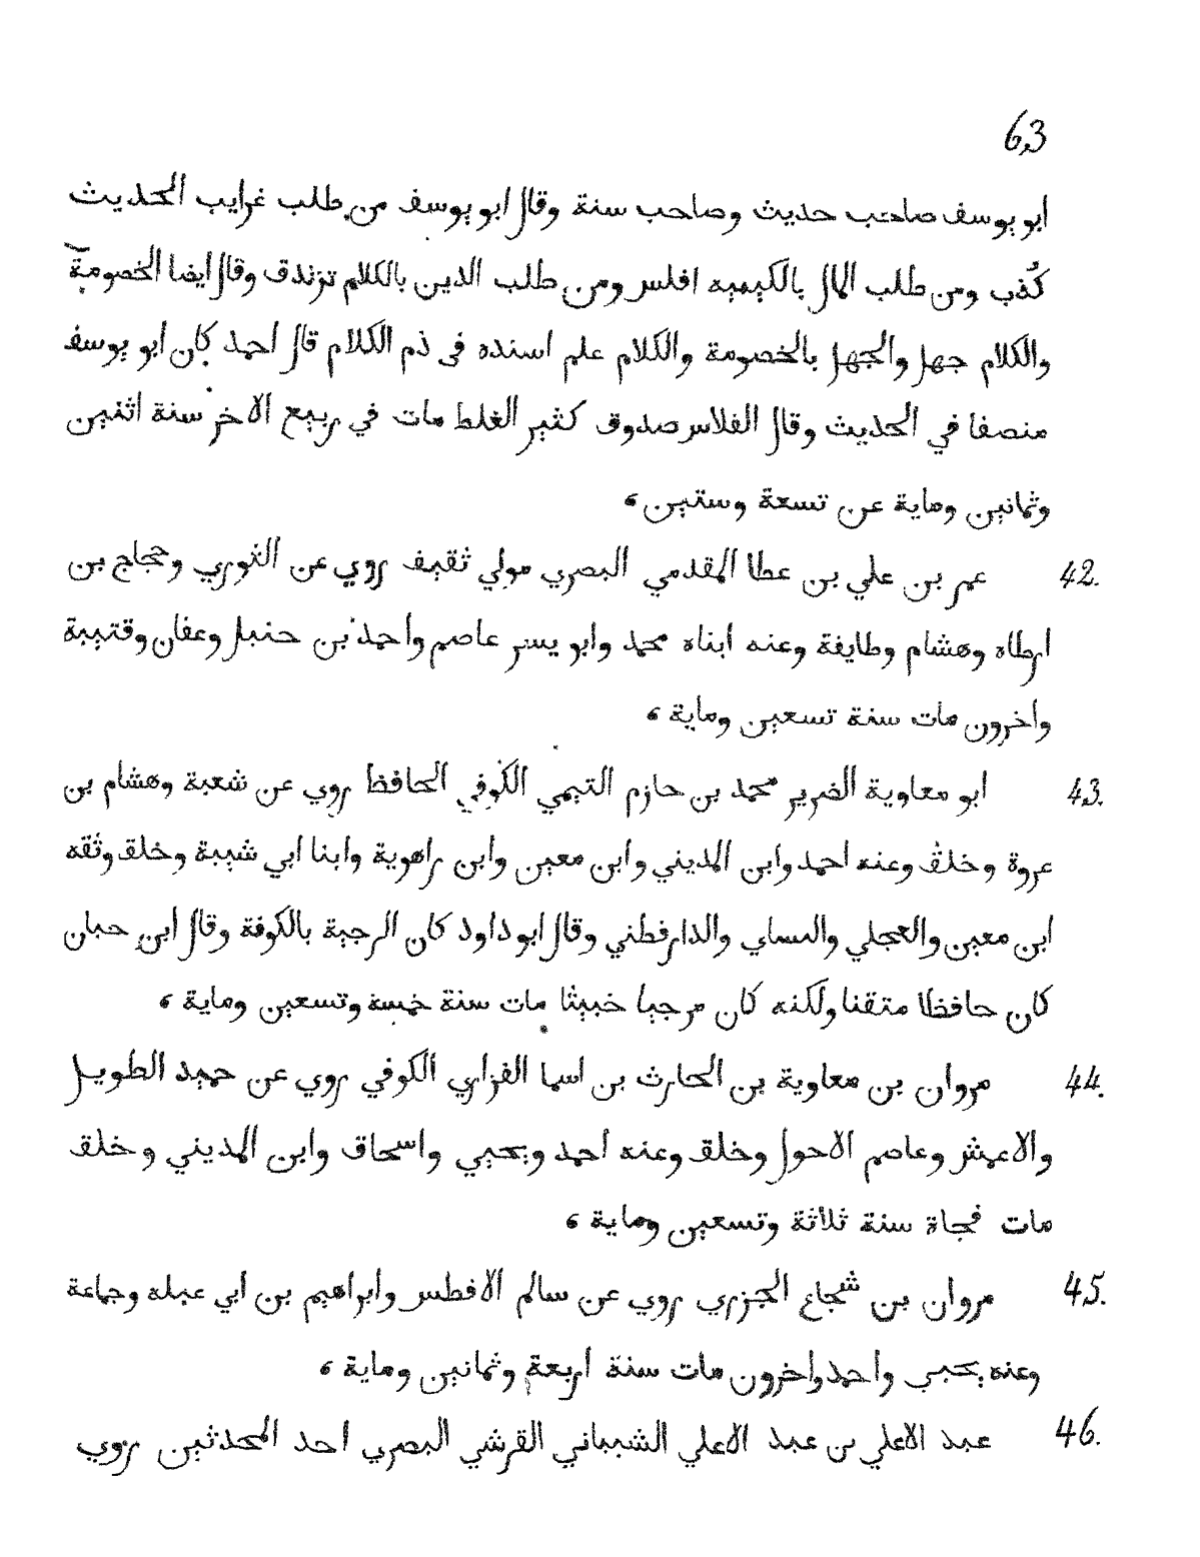 63
ابو يوسف صاحب حديث وصاحب سنة وقال ابو يوسف من طلب غرايب الحديث
كُذب ومن طلب المال بالكيميه افلس ومن طلب الدين بالكلام تزندق وقال ايضا الخصومة
والكلام جهل والجهل بالخصومة والكلام علم اسنده في ذم الكلام قال احمد كان ابو يوسف
منصفا في الحديث وقال الفلاس صدوق كثير الغلط مات في ربيع الاخر سنة اثنين
وثمانين وماية عن تسعة وستين،
42. عمر بن علي بن عطا المقدمي البصري مولي ثقيف روي عن الثوري وحجاج بن
ارطاه وهشام وطايفة وعنه ابناه محمد وابو يسر عاصم واحمد بن حنبل وعفان وقتيبة
واخرون مات سنة تسعين وماية،
43. ابو معاوية الضرير محمد بن حازم التيمي الكوفي الحافظ روي عن شعبة وهشام بن
عروة وخلق وعنه احمد وابن المديني وابن معين وابن راهوية وابنا ابي شيبة وخلق وثقه
ابن معين والعجلي والنساي والدارقطني وقال ابو داود كان الرجية بالكوفة وقال ابن حبان
كان حافظا متقنا ولكنه كان مرجيا خبيثا مات سنة خمسة وتسعين وماية،
44. مروان بن معاوية بن الحارث بن اسما الفزاري الكوفي روي عن حميد الطويل
والاعمش وعاصم الاحول وخلق وعنه احمد ويحيي واسحاق وابن المديني وخلق
مات فجاة سنة ثلاثة وتسعين وماية،
45. مروان بن شجاع الجزري روي عن سالم الافطس وابراهيم بن ابي عبله وجماعة
وعنه يحيي واحمد واخرون مات سنة اربعة وثمانين وماية،
46. عبد الاعلي بن عبد الاعلي الشيباني القرشي البصري احد المحدثين روي